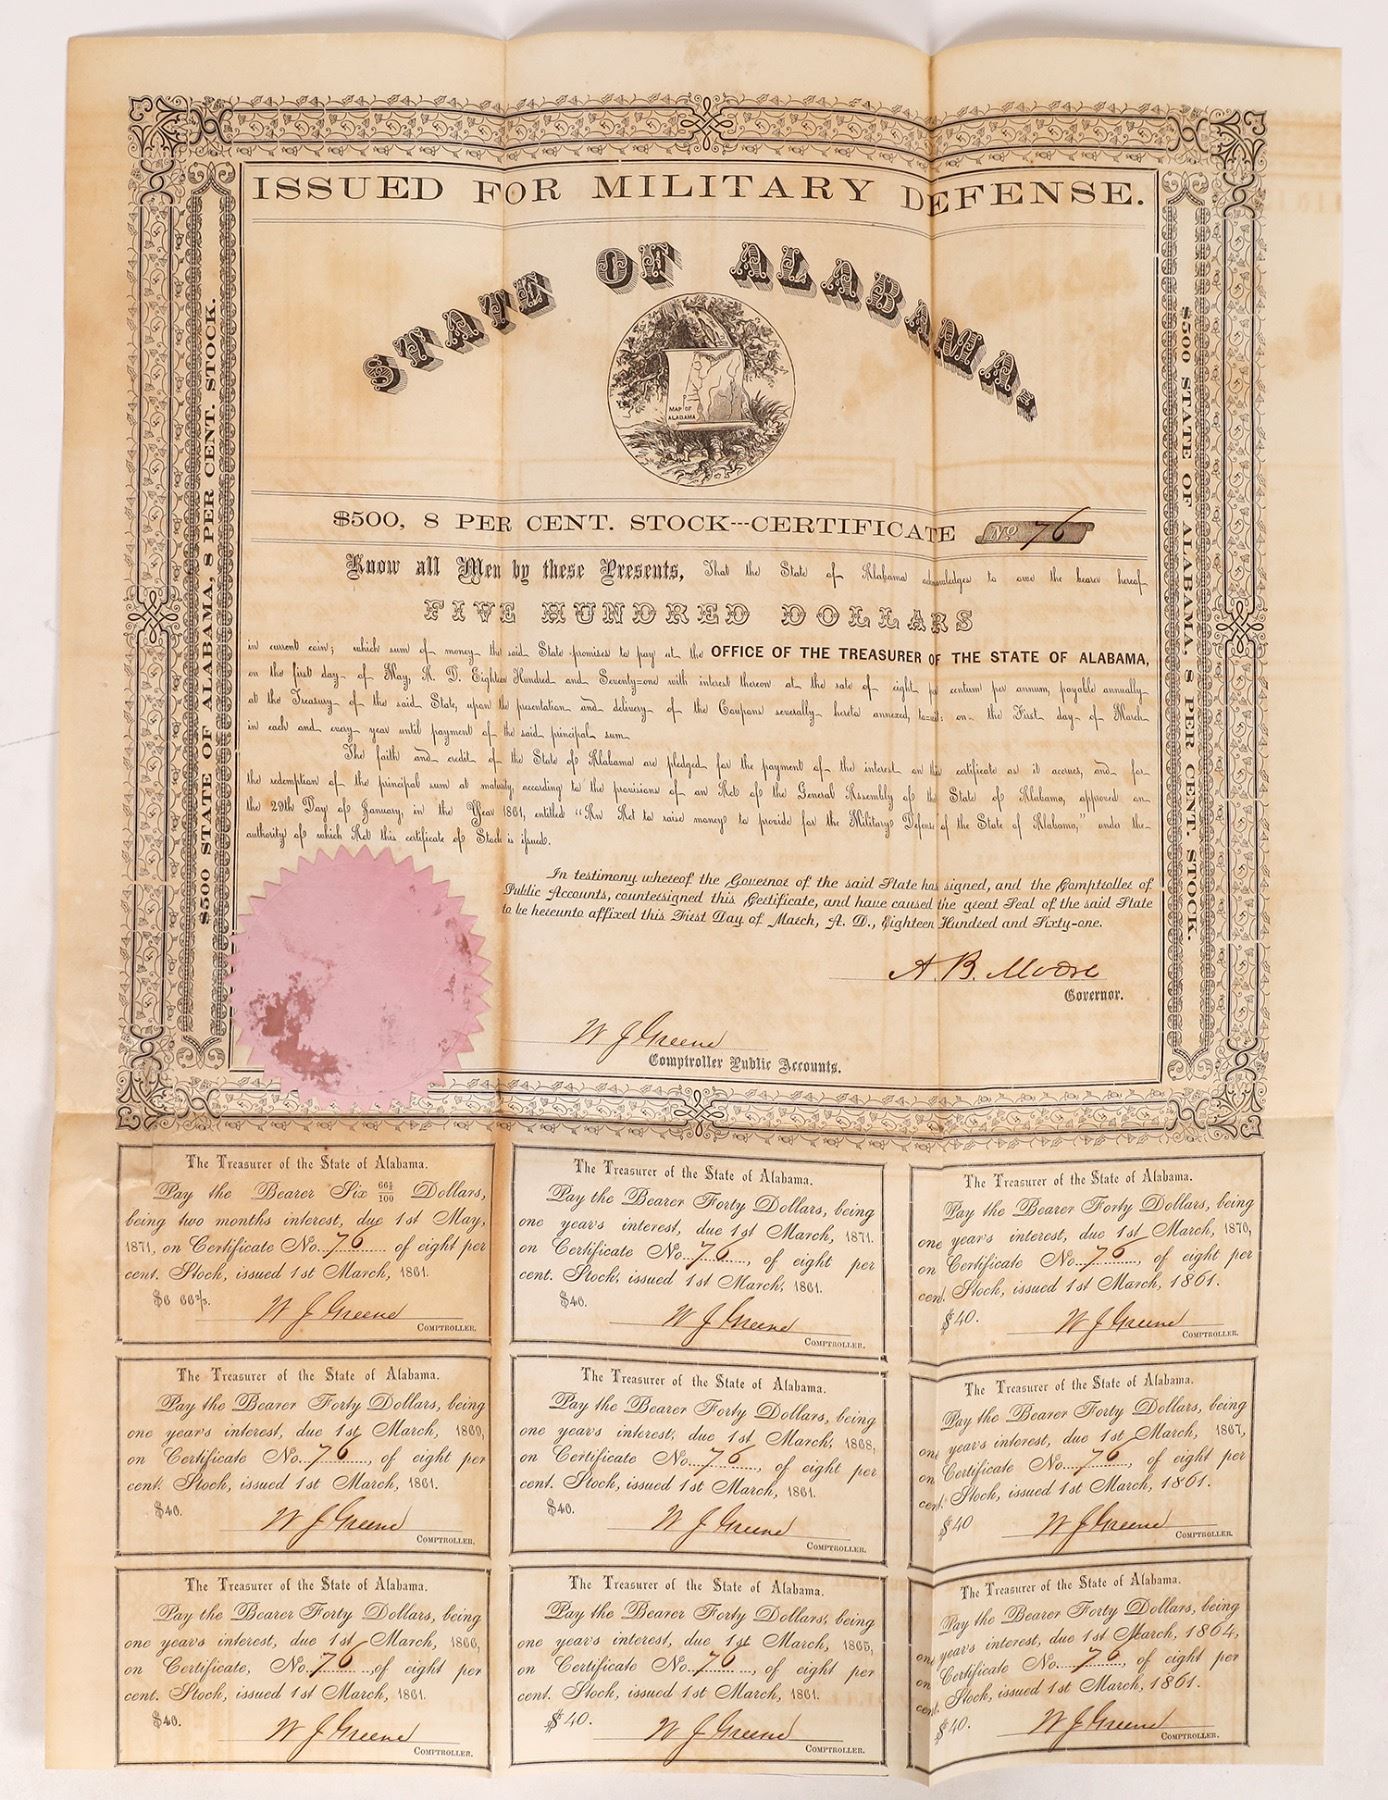 ISSUED FOR MILITARY DEFENSE.
STATE OF ALABAMA,
MAP OF
ALABAMA
$500 STATE OF ALABAMA, 8 PER CENT. STOCK.
$500 STATE OF ALABAMA, 8 PER CENT. STOCK.
$500, 8 PER CENT. STOCK---CERTIFICATE No 76
Know all Men by these Presents, That the State of Alabama acknowledges to owe the bearer hereof
FIVE HUNDRED DOLLARS
in current coin; which sum of money the said State promises to pay at the OFFICE OF THE TREASURER OF THE STATE OF ALABAMA,
on the first day of May, A. D. Eighteen Hundred and Seventy=one with interest thereon at the rate of eight per centum per annum, payable annually
at the Treasury of the said State, upon the presentation and delivery of the Coupons severally hereto annexed, to=wit: on the First day of March
in each and every year until payment of the said principal sum
The faith and credit of the State of Alabama are pledged for the payment of the interest on this certificate as it accrues, and for
the redemption of the principal sum at maturity, according to the provisions of an Act of the General Assembly of the State of Alabama, approved on
the 29th Day of January, in the Year 1861, entitled "An Act to raise money to provide for the Military Defense of the State of Alabama," under the
authority of which Act this certificate of Stock is issued.
In testimony whereof the Governor of the said State has signed, and the Comptroller of
Public Accounts, countersigned this Certificate, and have caused the great Seal of the said State
to be hereunto affixed this First Day of March, A. D., Eighteen Hundred and Sixty-one.
A. B. Moore
Governor.
W J Greene
Comptroller Public Accounts.
The Treasurer of the State of Alabama.
Pay the Bearer Six 66⅔/100 Dollars,
being two months interest, due 1st May,
1871, on Certificate No. 76 of eight per
cent. Stock, issued 1st March, 1861.
$6 66⅔.
W J Greene
COMPTROLLER.
The Treasurer of the State of Alabama.
Pay the Bearer Forty Dollars, being
one year's interest, due 1st March, 1871.
on Certificate No. 76, of eight per
cent. Stock, issued 1st March, 1861.
$40.
W J Greene
COMPTROLLER.
The Treasurer of the State of Alabama.
Pay the Bearer Forty Dollars, being
one year's interest, due 1st March, 1870,
on Certificate No. 76, of eight per
cent. Stock, issued 1st March, 1861.
$40.
W J Greene
COMPTROLLER.
The Treasurer of the State of Alabama.
Pay the Bearer Forty Dollars, being
one year's interest, due 1st March, 1869,
on Certificate No. 76, of eight per
cent. Stock, issued 1st March, 1861.
$40.
W J Greene
COMPTROLLER.
The Treasurer of the State of Alabama.
Pay the Bearer Forty Dollars, being
one year's interest, due 1st March, 1868,
on Certificate No. 76, of eight per
cent. Stock, issued 1st March, 1861.
$40.
W J Greene
COMPTROLLER.
The Treasurer of the State of Alabama.
Pay the Bearer Forty Dollars, being
one year's interest, due 1st March, 1867,
on Certificate No. 76, of eight per
cent. Stock, issued 1st March, 1861.
$40
W J Greene
COMPTROLLER.
The Treasurer of the State of Alabama.
Pay the Bearer Forty Dollars, being
one year's interest, due 1st March, 1866,
on Certificate, No. 76 of eight per
cent. Stock, issued 1st March, 1861.
$40.
W J Greene
COMPTROLLER.
The Treasurer of the State of Alabama.
Pay the Bearer Forty Dollars, being
one year's interest, due 1st March, 1865,
on Certificate No. 76, of eight per
cent. Stock, issued 1st March, 1861.
$40.
W J Greene
COMPTROLLER.
The Treasurer of the State of Alabama.
Pay the Bearer Forty Dollars, being
one year's interest, due 1st March, 1864,
on Certificate No. 76, of eight per
cent. Stock, issued 1st March, 1861.
$40.
W J Greene
COMPTROLLER.